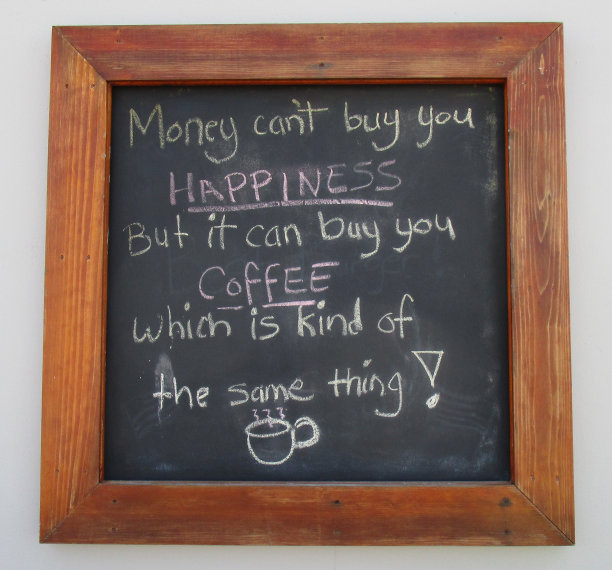 Money can't buy you
HAPPINESS
But it can buy you
COFFEE
which is kind of
the same thing!